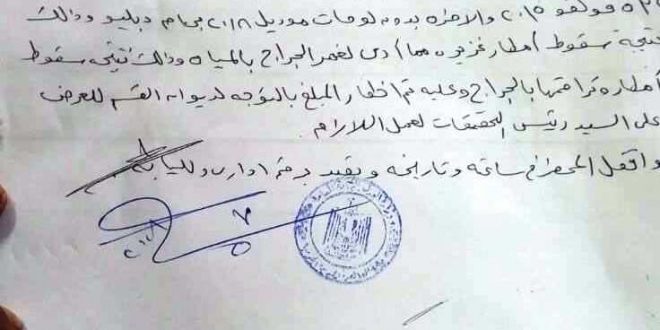 فولفو ٢٠١٥ والاخرى بدون لوحات موديل ٢٠١٨ بي ام دبليو وذلك
نتيجة سقوط أمطار غزيره مما أدى لغمر الجراج بالمياه وذلك نتيجة سقوط
أمطار وتراكمها بالجراج وعليه تم اخطار المبلغ بالتوجه لديوان القسم للعرض
على السيد رئيس التحقيقات لعمل اللازم
واقفل المحضر في ساعته وتاريخه ويقيد برقم اداري وللنيابة
٧
٥
٢٠١٨